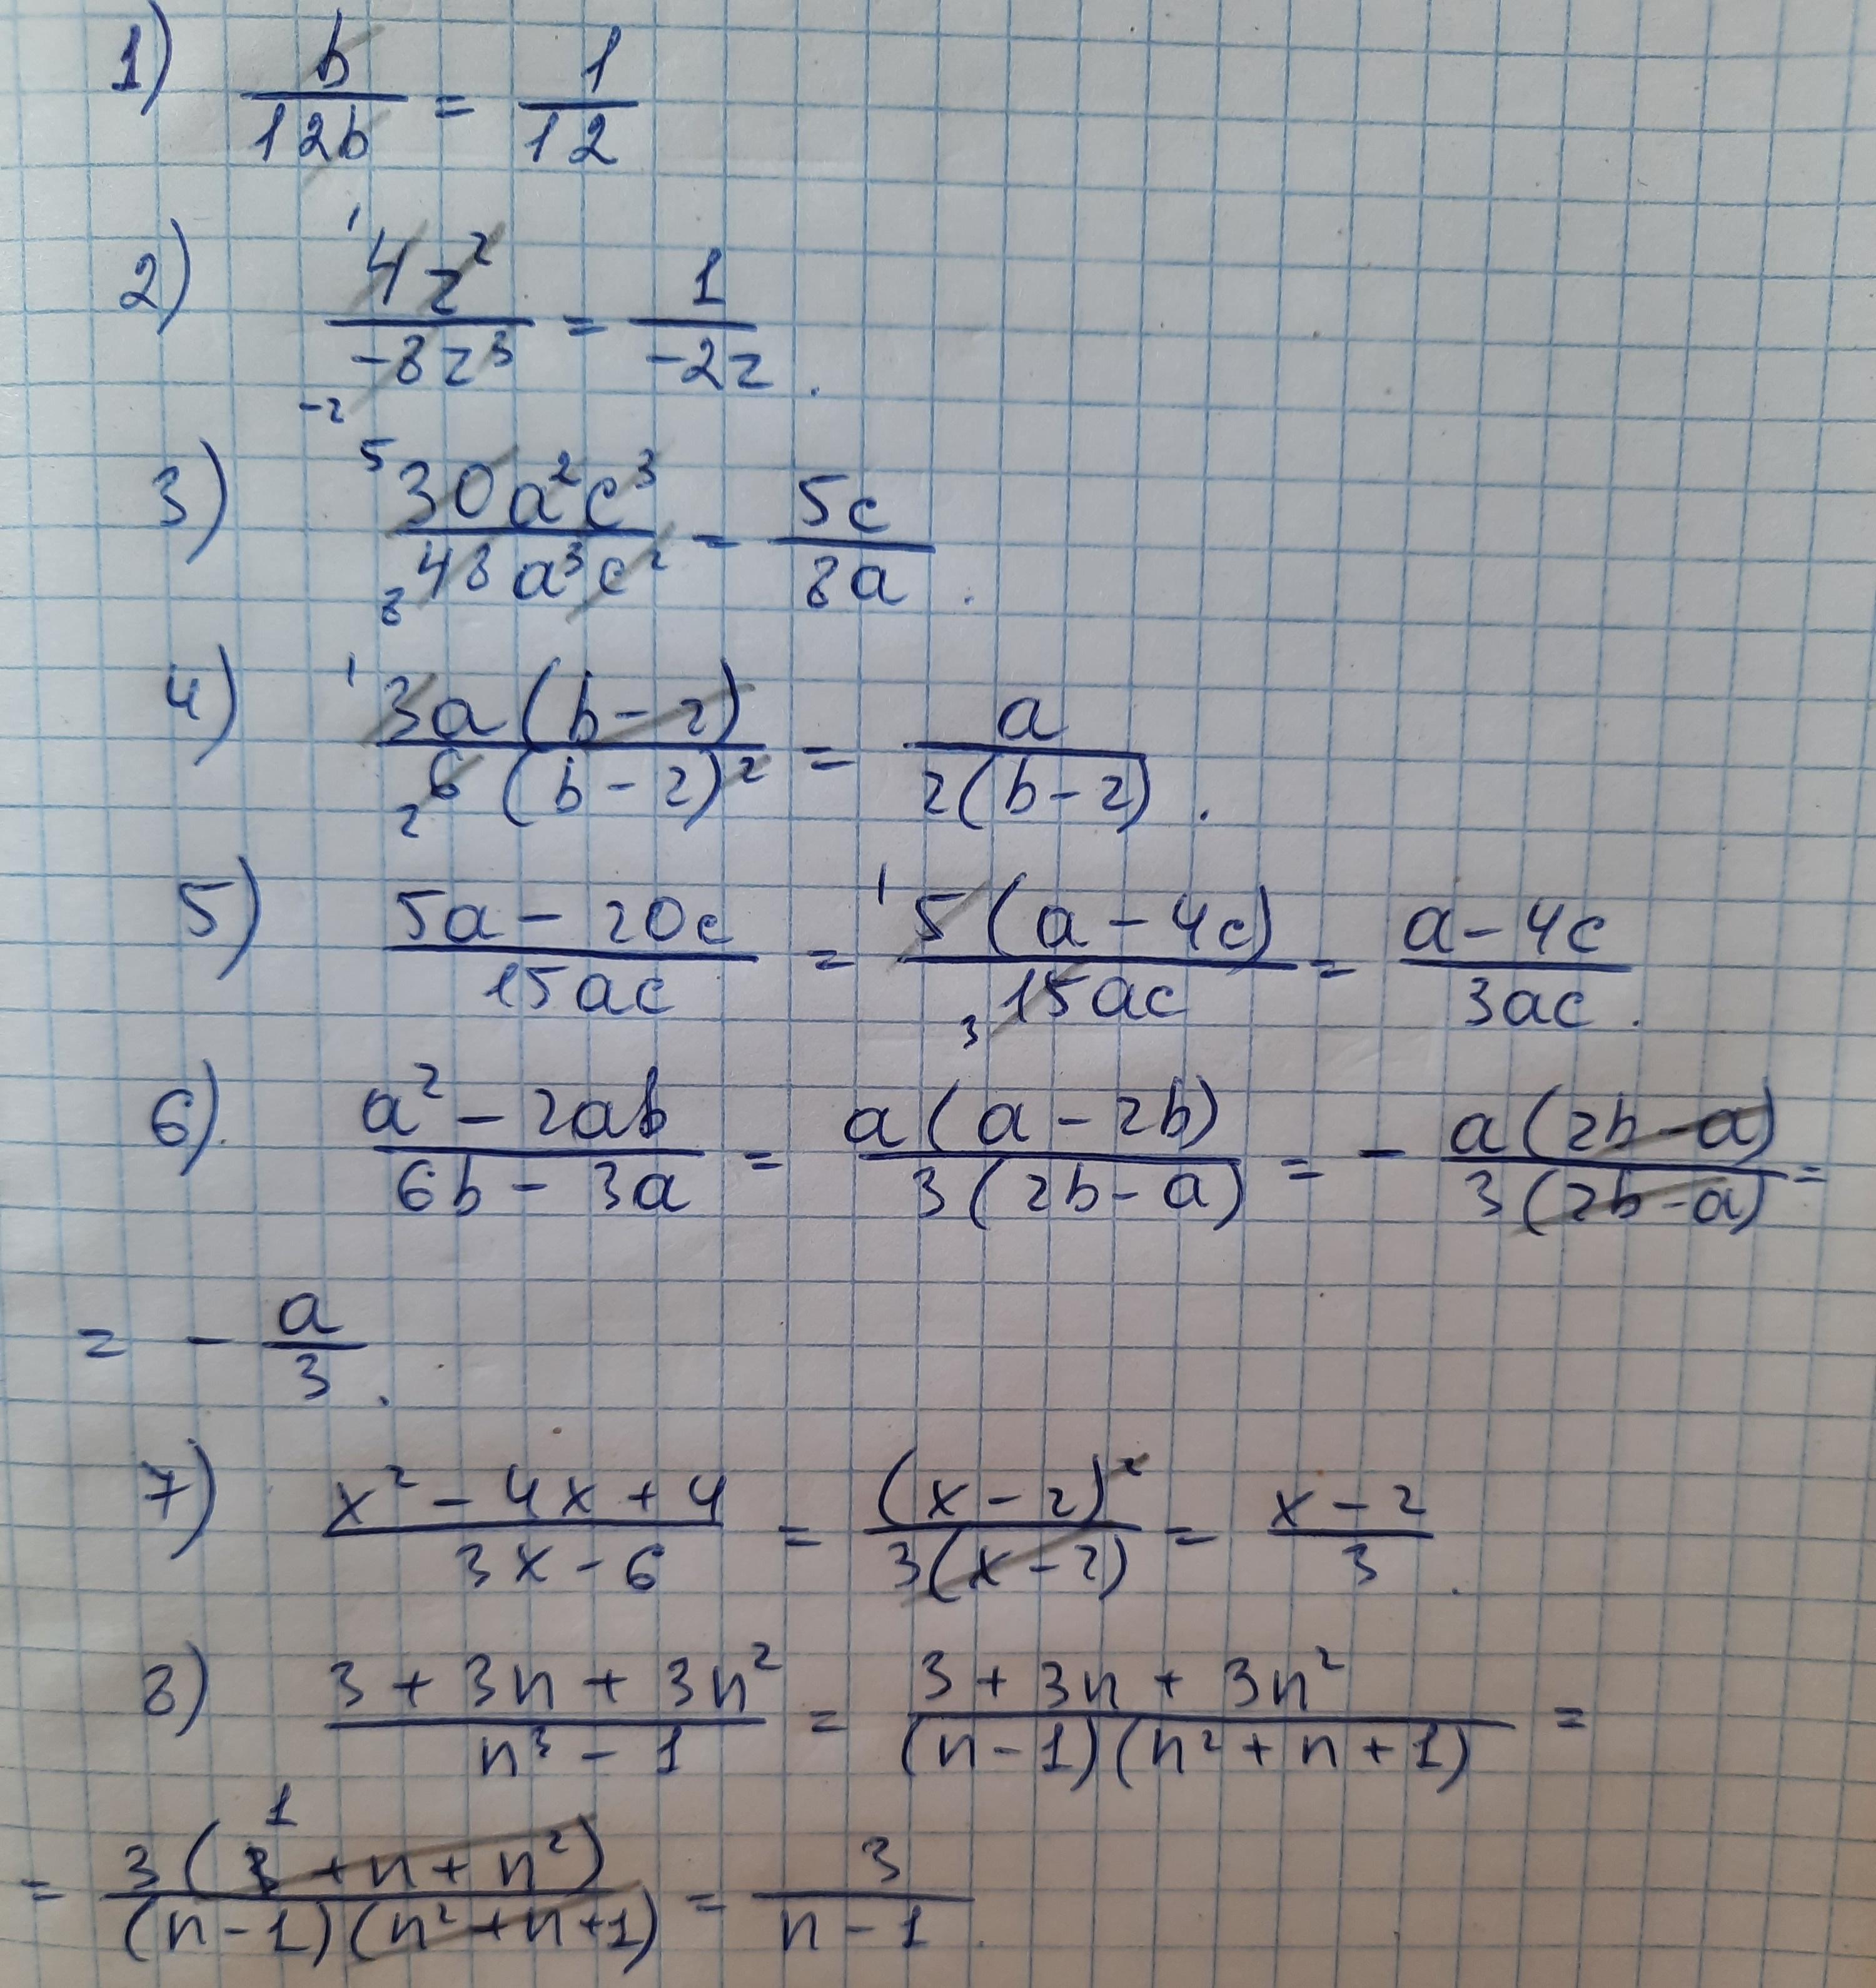 1) b/12b = 1/12
2) 4z²/-8z³ = 1/-2z. 1 -2
3) 30a²c³/48a³c² = 5c/8a. 5 8
4) 3a(b-2)/6(b-2)² = a/2(b-2). 1 2
5) 5a-20c/15ac = 5(a-4c)/15ac = a-4c/3ac. 1 3
6) a²-2ab/6b-3a = a(a-2b)/3(2b-a) = - a(2b-a)/3(2b-a) =
= - a/3.
7) x²-4x+4/3x-6 = (x-2)²/3(x-2) = x-2/3.
8) 3+3n+3n²/n³-1 = 3+3n+3n²/(n-1)(n²+n+1) =
= 3(1+n+n²)/(n-1)(n²+n+1) = 3/n-1.